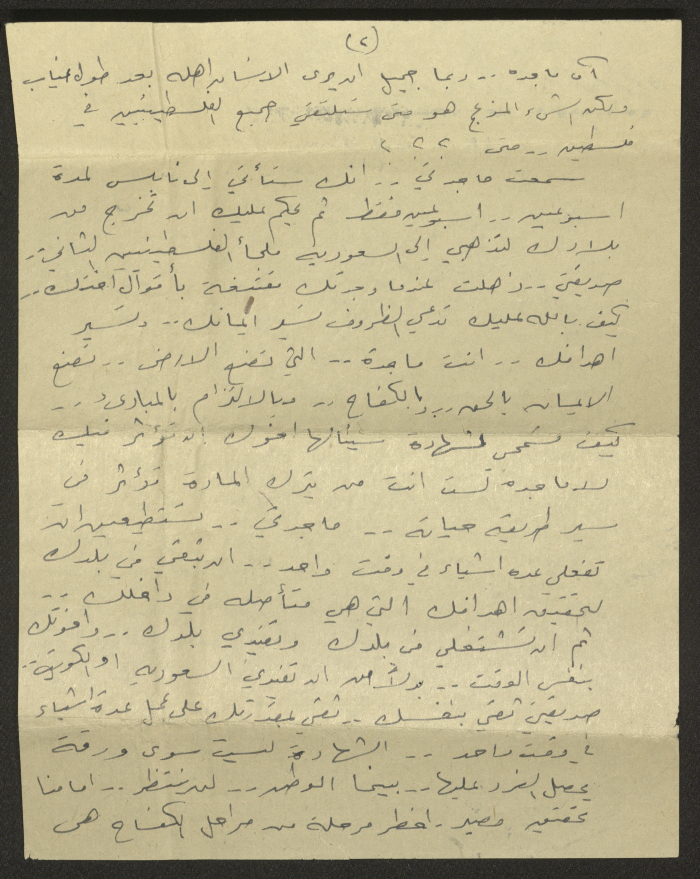 (٢)
آه ماجدة .. ربما جميل ان يرى الانسان اهله بعد طول غياب
ولكن الشيء المزعج هو متى سيلتقي جميع الفلسطينيين في
فلسطين .. متى ؟ ؟ ؟
سمعت ماجدتي .. انك ستأتي إلى نابلس لمدة
اسبوعين .. اسبوعين فقط ثم يحكم عليك ان تخرج من
بلادك لتذهبي إلى السعودية ملجأ الفلسطينيين الثاني ..
صديقتي .. ذهلت عندما وجدتك مقتنعة بأقوال اختك ..
كيف بالله عليك تدعي الظروف تسير ايمانك .. وتسير
اهدافك .. انت ماجدة .. التي تصنع الارض .. تصنع
الايمان بالحق .. وبالكفاح .. وبالالتزام بالمبادئ ..
كيف تسمحي لشهادة سينالها اخوك ان تؤثر فيك
لا ماجدة لست انت من يترك المادة تؤثر في
سير طريقة حياته .. ماجدتي .. تستطيعين ان
تفعلي عدة اشياء في وقت واحد .. ان تبقي في بلدك
لتحقيق اهدافك التي هي متأصلة في داخلك ..
ثم ان تشتغلي في بلدك وتفيدي بلدك .. واخوتك
بنفس الوقت .. بدلاً من ان تفيدي السعودية او الكويت ..
صديقتي ثقي بنفسك .. ثقي بمقدرتك على عمل عدة اشياء
في وقت واحد .. الشهادة ليست سوى ورقة
يحصل الفرد عليها .. بينما الوطن .. لن ينتظر .. امامنا
تحقيق مصير . اخطر مرحلة من مراحل الكفاح هي